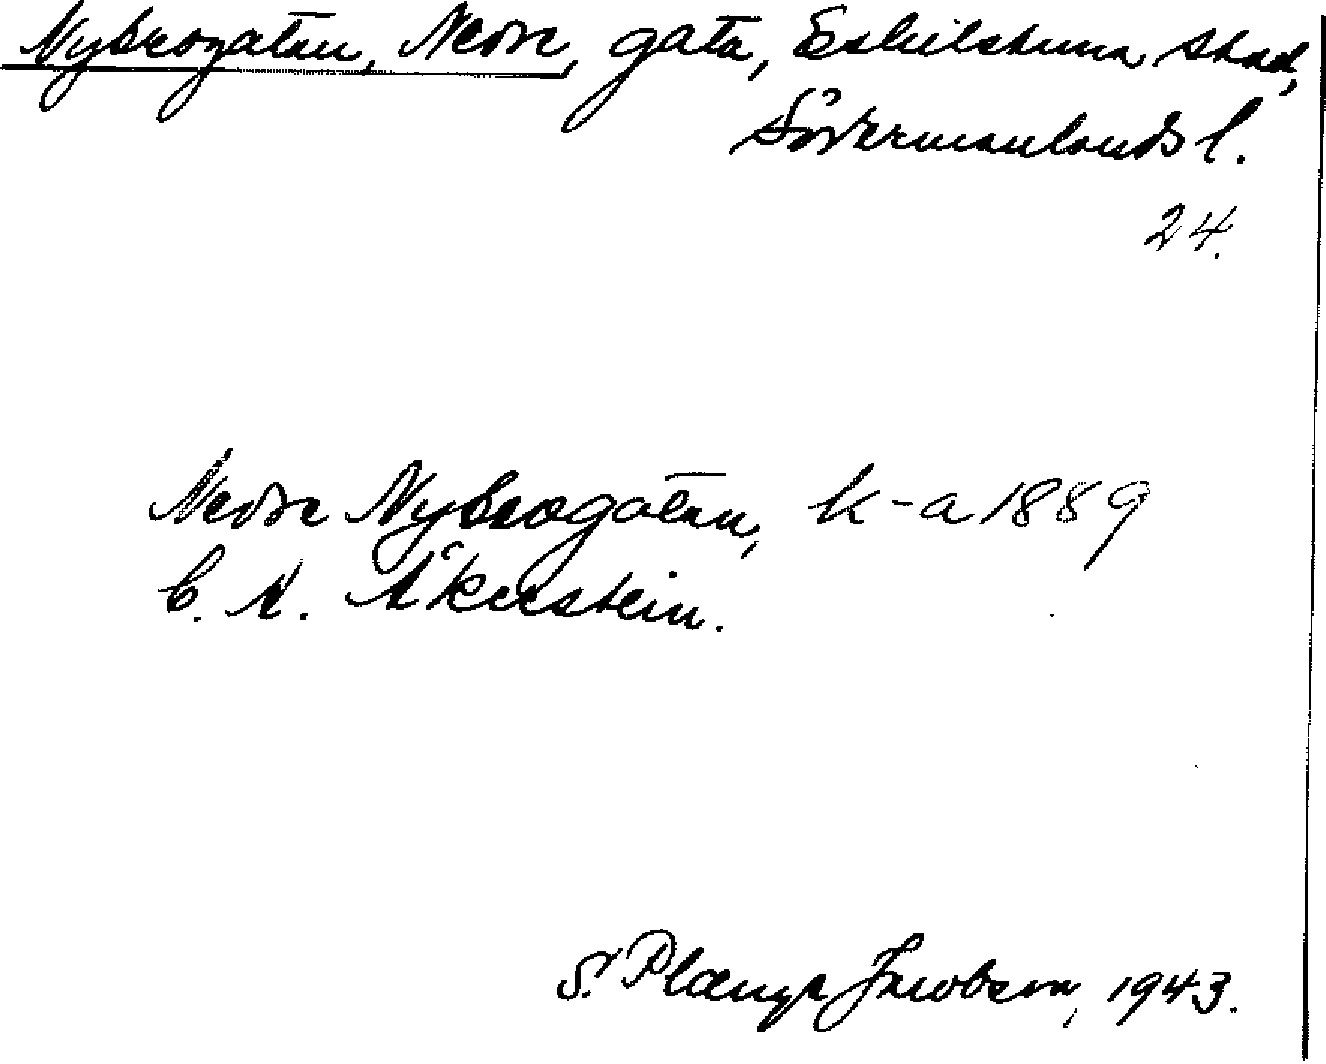 Nybrogatan, Nedre, gata, Eskilstuna stad,
Södermanlands l.
24.
Nedre Nybrogatan, k-a 1889
C. A. Åkerstein.
S. Jacobson, 1943.